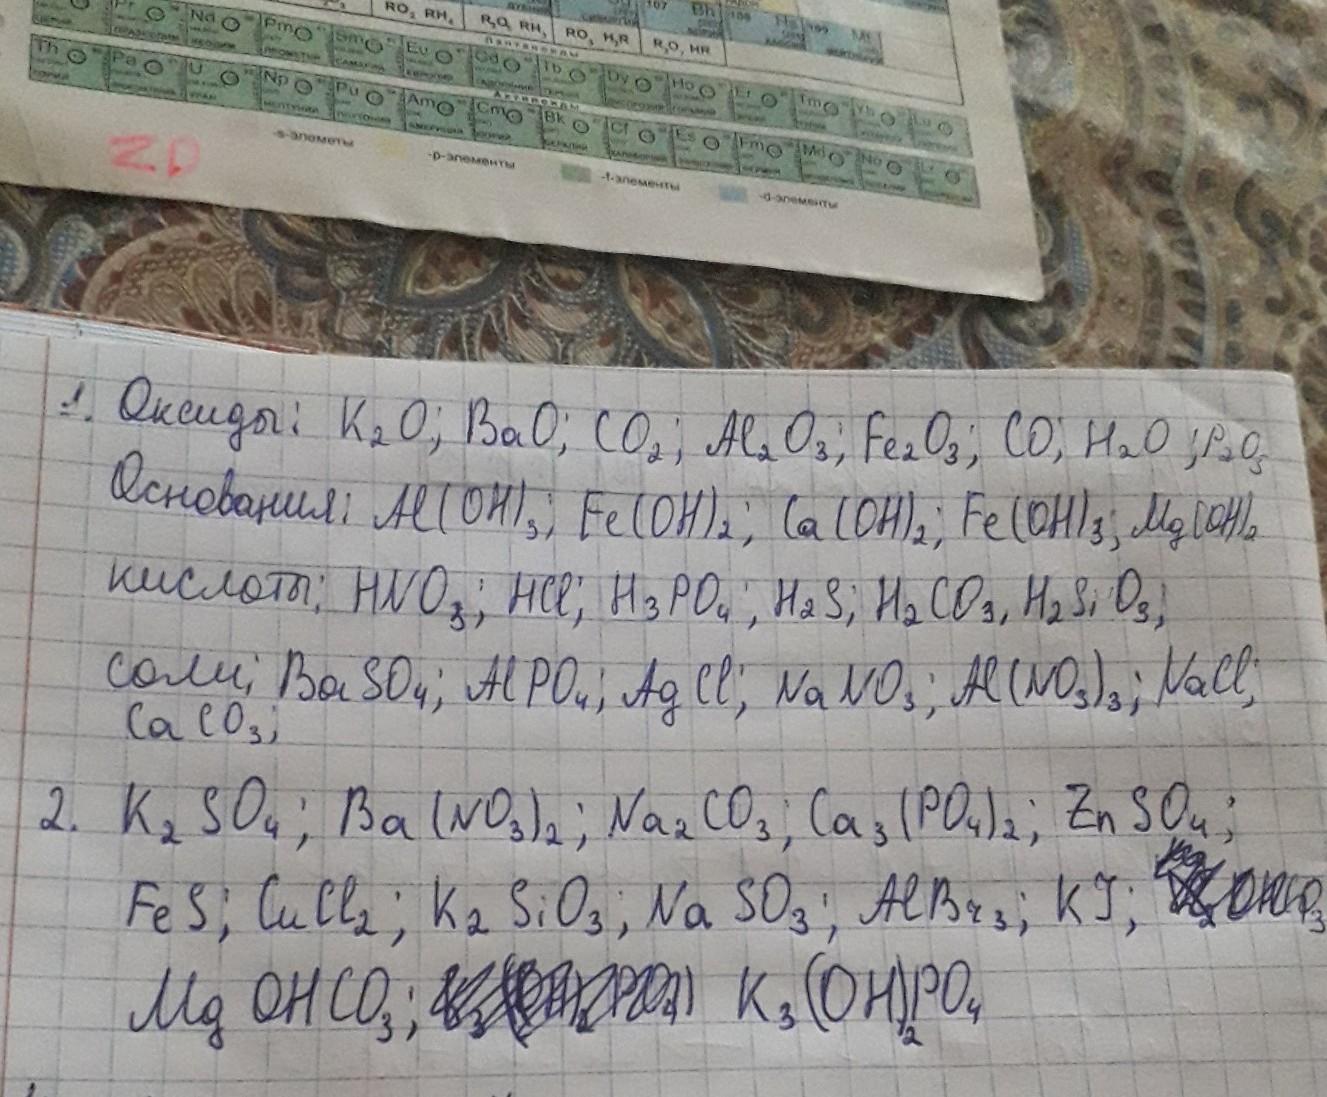 RO₂ RH₄ R₂O₅ RH₃ RO₃ H₂R R₂O₇ HR 107 Bh 108 Hs 109 Mt
Pr Nd Pm Sm Eu Gd Tb Dy Ho Er Tm Yb Lu
Актиноиды
Th Pa U Np Pu Am Cm Bk Cf Es Fm Md No Lr
-s-элеметы -р-элементы -f-элементы -d-элементы
1. Оксиды: K₂O; BaO; CO₂; Al₂O₃; Fe₂O₃; CO; H₂O; P₂O₅
Основания: Al(OH)₃; Fe(OH)₂; Ca(OH)₂; Fe(OH)₃; Mg(OH)₂
кислоты: HNO₃; HCl; H₃PO₄; H₂S; H₂CO₃, H₂SiO₃;
соли; BaSO₄; AlPO₄; AgCl; NaNO₃; Al(NO₃)₃; NaCl;
CaCO₃;
2. K₂SO₄; Ba(NO₃)₂; Na₂CO₃; Ca₃(PO₄)₂; ZnSO₄;
FeS; CuCl₂; K₂SiO₃; NaSO₃; AlBr₃; KJ;
MgOHCO₃; K₃(OH)₂PO₄